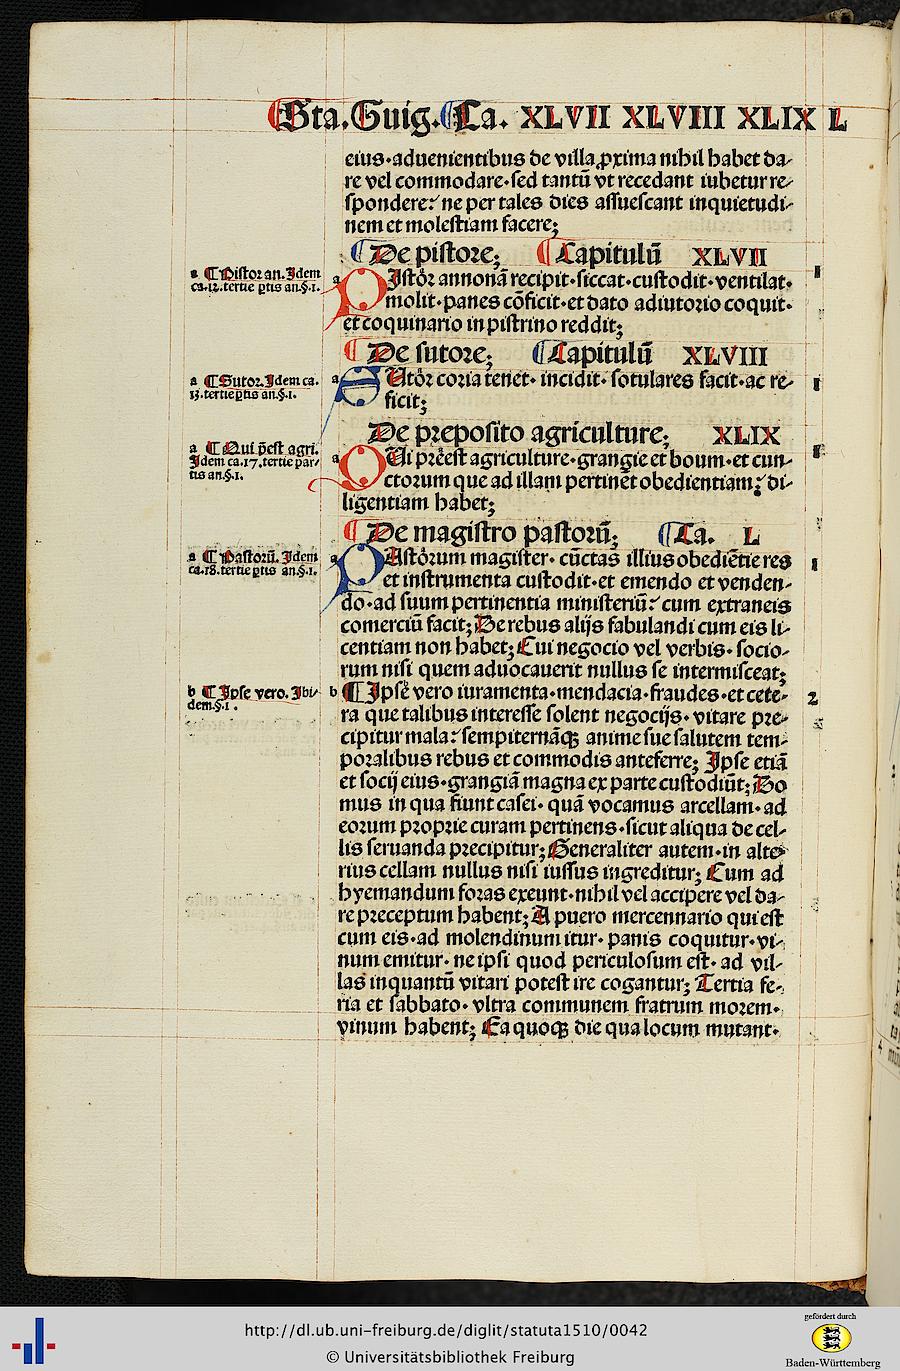 Sta. Guig. Ca. XLVII XLVIII XLIX L
eius·aduenientibus de villa ꝓxima nihil habet da-
re vel commodare·sed tantū vt recedant iubetur re-
spondere: ne per tales dies assuescant inquietudi-
nem et molestiam facere;
De pistore; Capitulū XLVII
a ¶ Pistor an. Idem
ca.12. tertie ꝑtis an.§.1.
a PIstor annonā recipit·siccat·custodit·ventilat·
molit·panes cōficit·et dato adiutorio coquit·
et coquinario in pistrino reddit;
De sutore; Capitulū XLVIII
a ¶ Sutor. Idem ca.
13. tertie ꝑtis an.§.1.
a SUtor coria tenet· incidit· sotulares facit·ac re-
ficit;
De preposito agriculture; XLIX
a ¶ Qui p̄est agri.
Idem ca.17. tertie par-
tis an.§.1.
a QUi preest agriculture·grangie et boum·et cun-
ctorum que ad illam pertinēt obedientiam: di-
ligentiam habet;
De magistro pastorū; Ca. L
a ¶ Pastorū. Idem
ca.18. tertie ꝑtis an.§.1.
a PAstorum magister· cūctas illius obediētie res
et instrumenta custodit·et emendo et venden-
do·ad suum pertinentia ministeriū: cum extraneis
comerciū facit; De rebus alijs fabulandi cum eis li-
centiam non habet; Cui negocio vel verbis· socio-
rum nisi quem aduocauerit nullus se intermisceat;
b ¶ Ipse vero. Ibi-
dem.§.1.
b ¶ Ipse vero iuramenta·mendacia·fraudes·et cete- 2
ra que talibus interesse solent negocijs· vitare pre-
cipitur mala: sempiternāqꝫ anime sue salutem tem-
poralibus rebus et commodis anteferre; Ipse etiā
et socij eius·grangiā magna ex parte custodiūt; Do
mus in qua fiunt casei· quā vocamus arcellam·ad
eorum proprie curam pertinens·sicut aliqua de cel-
lis seruanda precipitur; Generaliter autem·in alte-
rius cellam nullus nisi iussus ingreditur; Cum ad
hyemandum foras exeunt·nihil vel accipere vel da-
re preceptum habent; A puero mercennario qui est
cum eis·ad molendinum itur· panis coquitur·vi-
num emitur· ne ipsi quod periculosum est· ad vil-
las inquantū vitari potest ire cogantur; Tertia fe-
ria et sabbato· vltra communem fratrum morem·
vinum habent; Ea quoqꝫ die qua locum mutant·
http://dl.ub.uni-freiburg.de/diglit/statuta1510/0042
© Universitätsbibliothek Freiburg
gefördert durch
Baden-Württemberg